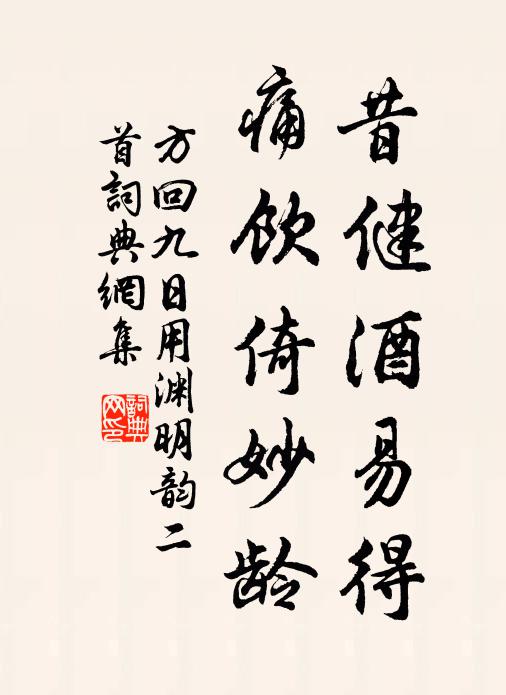 昔健酒易得
痛饮倚妙龄
方回九日用渊明韵二
首詞典網集
詞典
网印